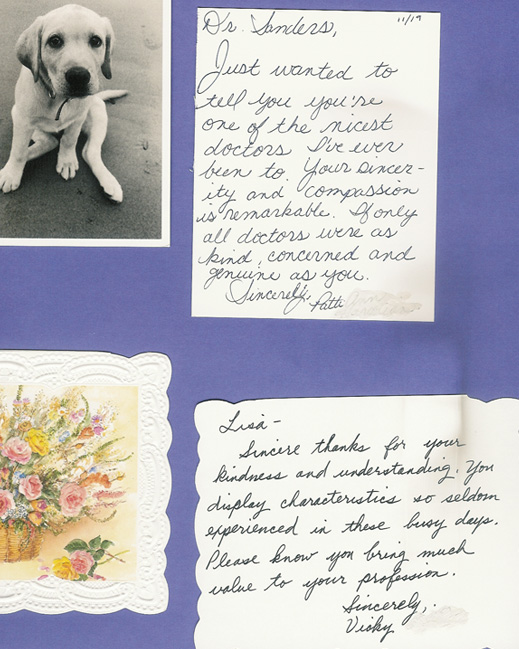 Dr. Sanders,
11/19
Just wanted to
tell you you're
one of the nicest
doctors I've ever
been to. Your sincer-
ity and compassion
is remarkable. If only
all doctors were as
kind, concerned and
genuine as you.
Sincerely,
Patti
Lisa-
Sincere thanks for your
kindness and understanding. You
display characteristics so seldom
experienced in these busy days.
Please know you bring much
value to your profession.
Sincerely,
Vicky